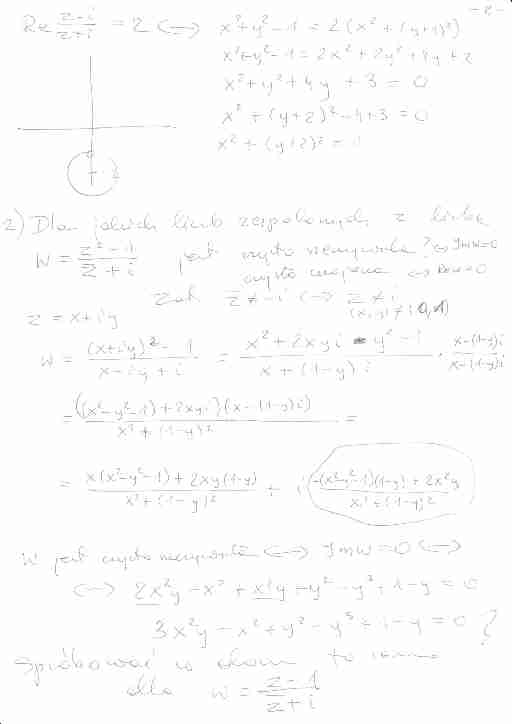 - 2 -
Re \frac{z-i}{z+i} = 2 <-> x²+y²-1 = 2(x²+(y+1)²)
x²+y²-1 = 2x²+2y²+4y+2
x²+y²+4y+3=0
x²+(y+2)²-4+3=0
x²+(y+2)²=1
2) Dla jakich liczb zespolonych z liczba
w = \frac{z²-1}{\bar{z}+i} jest czysto rzeczywista? <-> Im w=0
czysto urojona <-> Re w=0
Zał \bar{z}≠-i <-> z≠i
z = x+iy (x,y)≠(0,1)
w = \frac{(x+iy)²-1}{x-iy+i} = \frac{x²+2xyi-y²-1}{x+(1-y)i} · \frac{x-(1-y)i}{x-(1-y)i}
= \frac{((x²-y²-1)+2xyi)(x-(1-y)i)}{x²+(1-y)²} =
= \frac{x(x²-y²-1)+2xy(1-y)}{x²+(1-y)²} + i \frac{-(x²-y²-1)(1-y)+2x²y}{x²+(1-y)²}
w jest czysto rzeczywista <-> Im w=0 <->
<-> 2x²y-x²+x²y+y²-y³+1-y=0
3x²y-x²+y²-y³+1-y=0 ?
Spróbować w domu to samo
dla w = \frac{z-1}{\bar{z}+i}